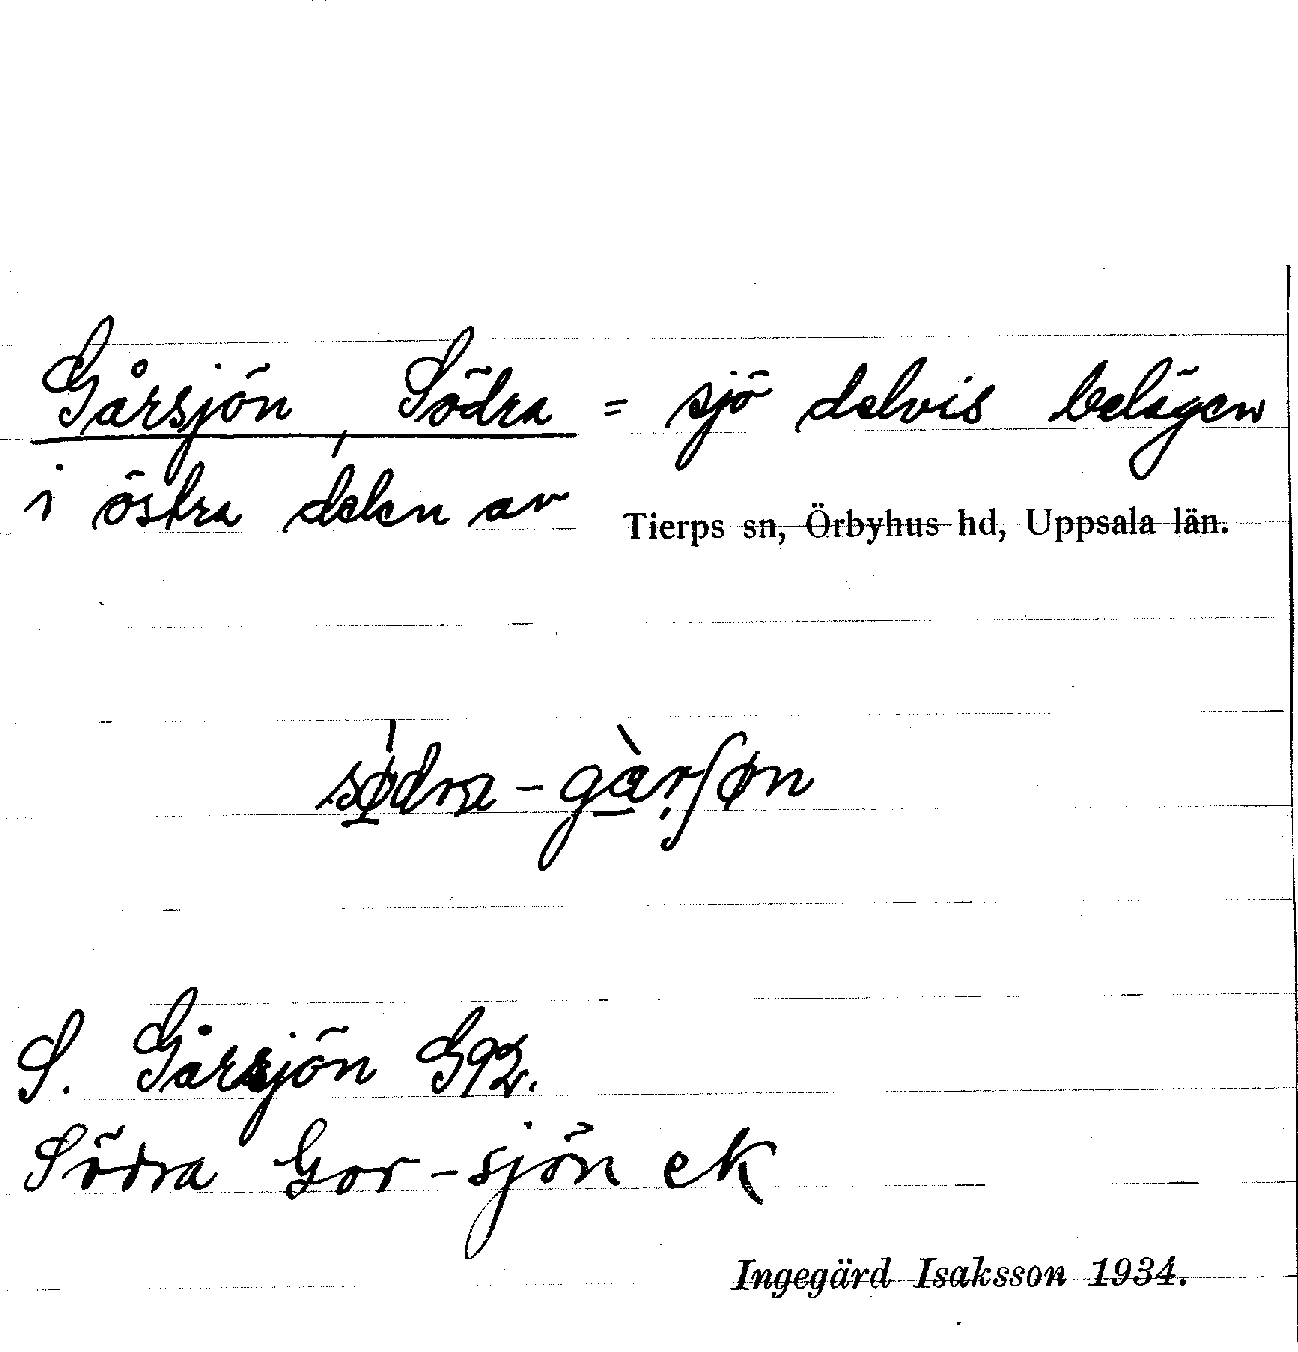 Gårsjön, Södra = sjö delvis belägen
i östra delen av Tierps sn, Örbyhus hd, Uppsala län.
södra-gàrʃøn
S. Gårsjön G92.
Södra Gor-sjön ek
Ingegärd Isaksson 1934.